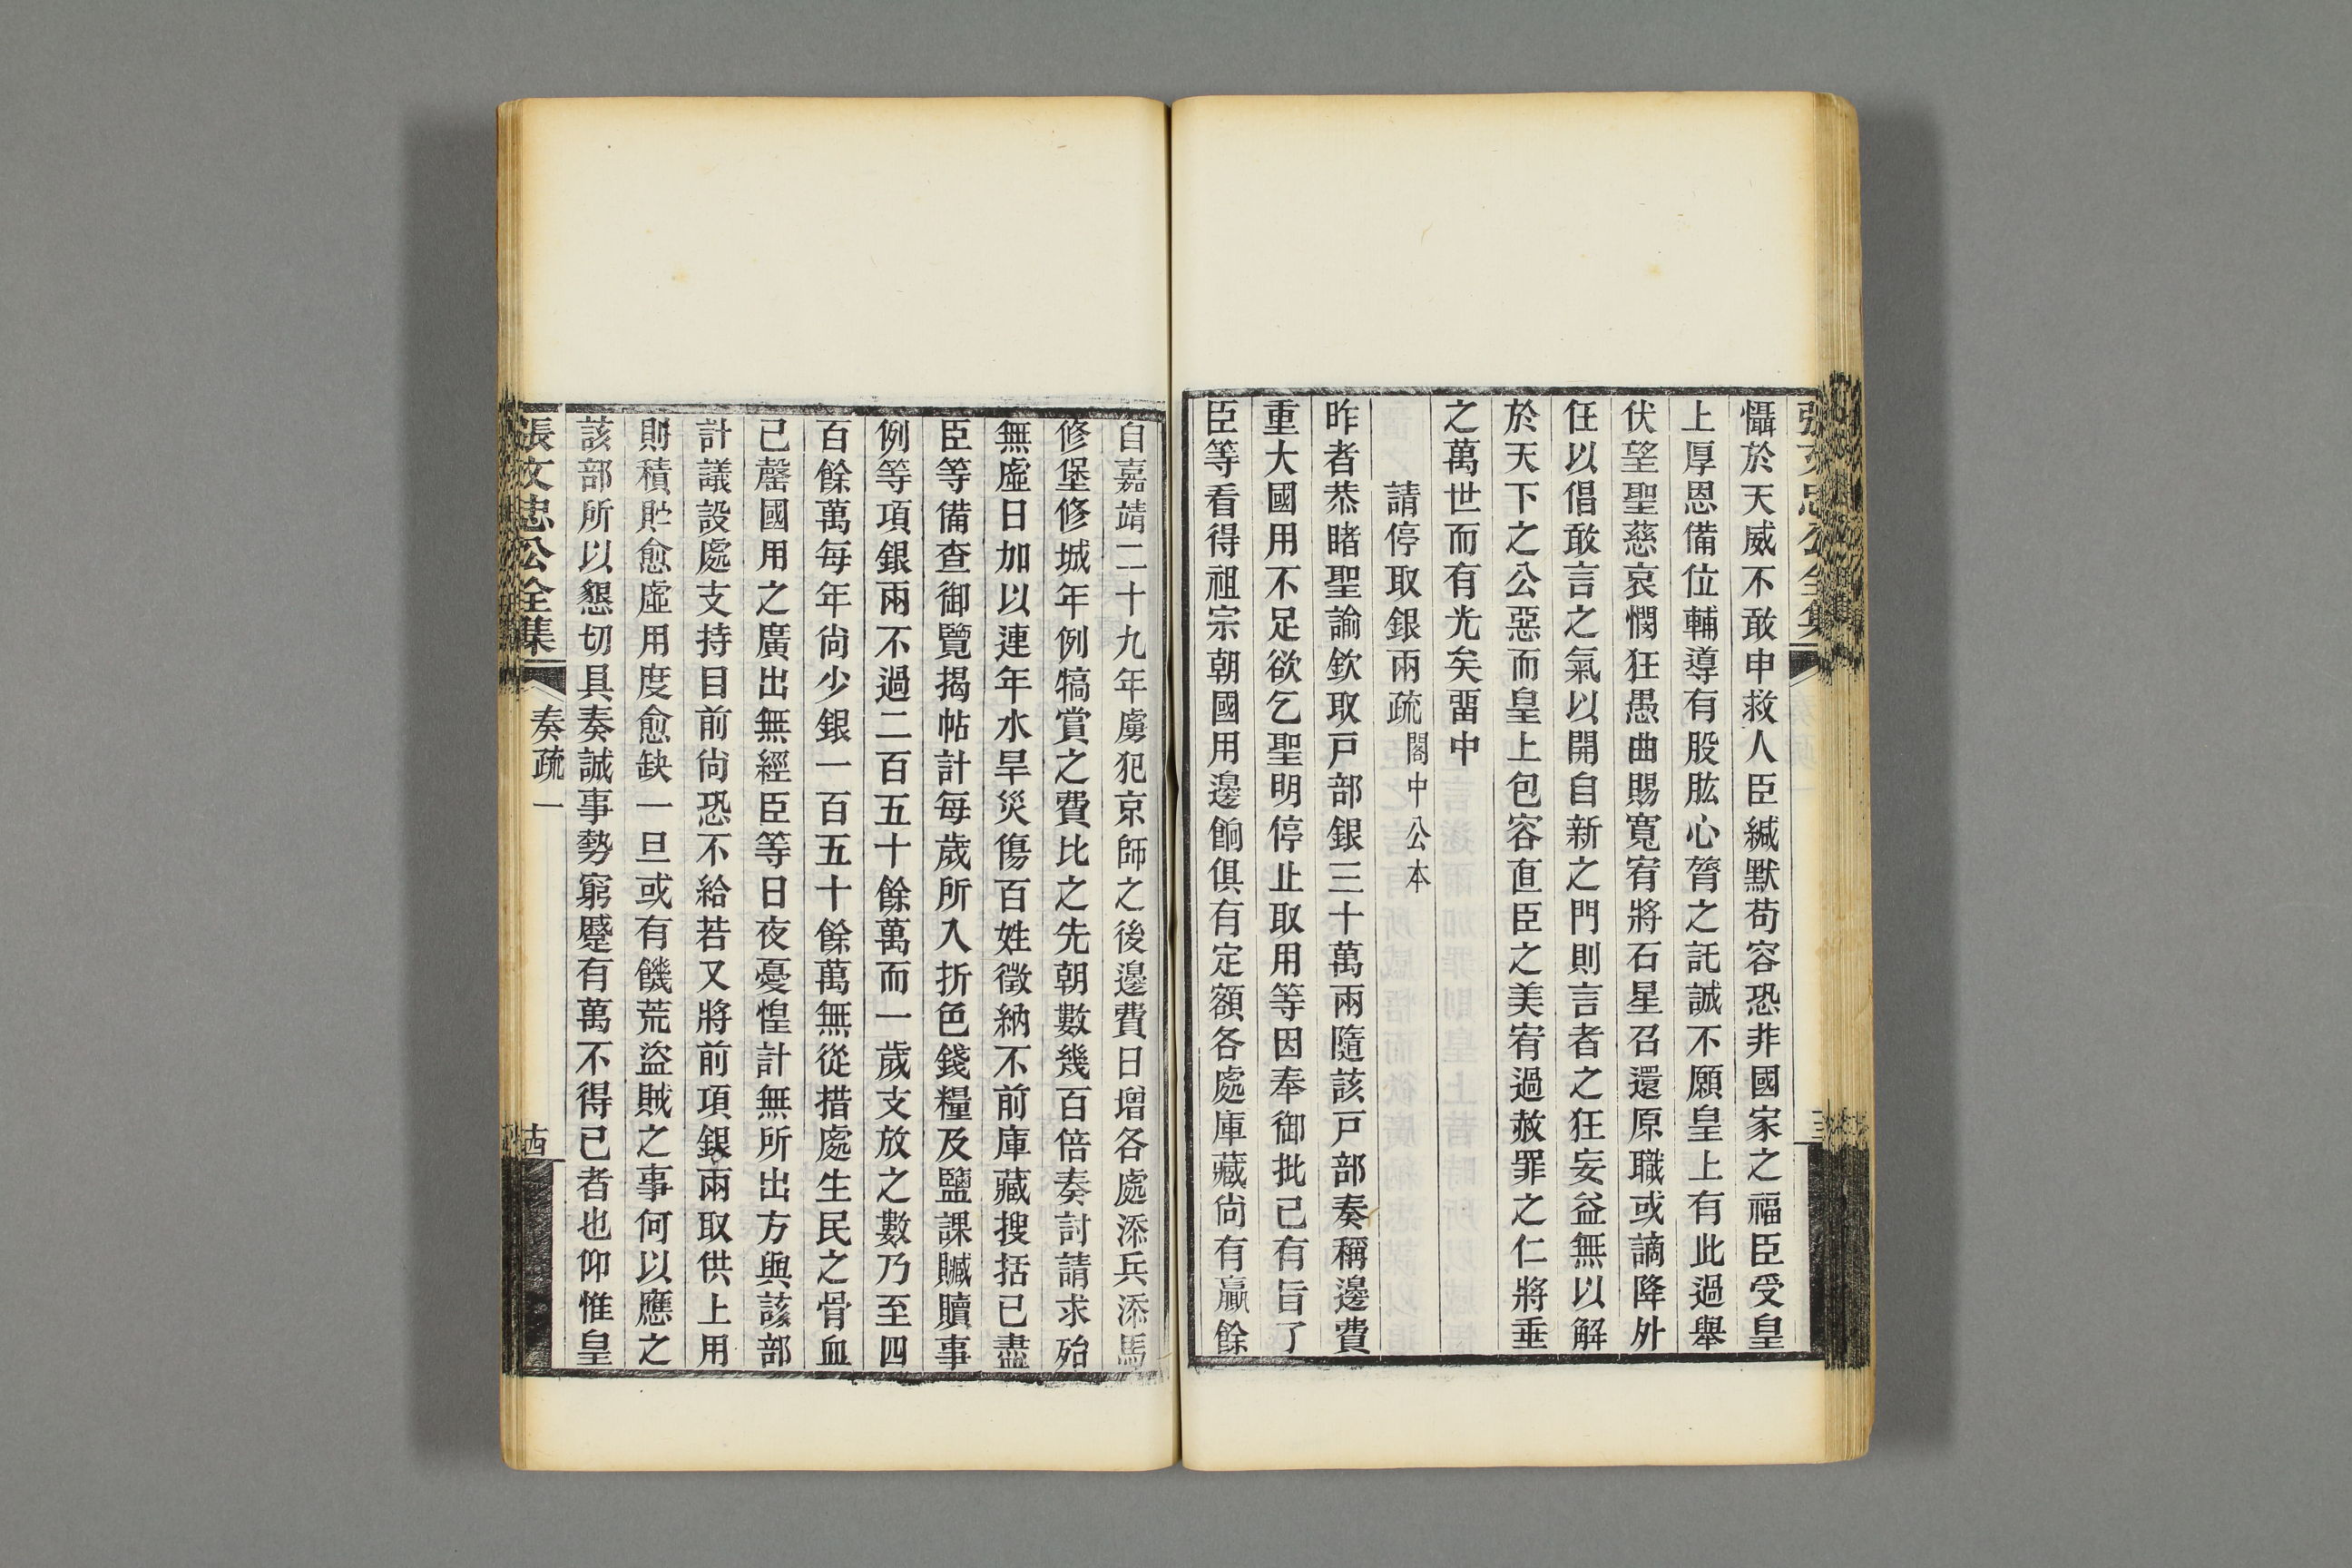 張文忠公全集
懾於天威不敢申救人臣緘默苟容恐非國家之福臣受皇
上厚恩備位輔導有股肱心膂之託誠不願皇上有此過舉
伏望聖慈哀憫狂愚曲賜寬宥將石星召還原職或謫降外
任以倡敢言之氣以開自新之門則言者之狂妄益無以解
於天下之公惡而皇上包容直臣之美宥過赦罪之仁將垂
之萬世而有光矣畱中
請停取銀兩疏閣中公本
昨者恭睹聖諭欽取戶部銀三十萬兩隨該戶部奏稱邊費
重大國用不足欲乞聖明停止取用等因奉御批已有旨了
臣等看得祖宗朝國用邊餉俱有定額各處庫藏尙有贏餘
自嘉靖二十九年虜犯京師之後邊費日增各處添兵添馬
修堡修城年例犒賞之費比之先朝數幾百倍奏討請求殆
無虛日加以連年水旱災傷百姓徵納不前庫藏搜括已盡
臣等備查御覽揭帖計每歲所入折色錢糧及鹽課贓贖事
例等項銀兩不過二百五十餘萬而一歲支放之數乃至四
百餘萬每年尙少銀一百五十餘萬無從措處生民之骨血
已罄國用之廣出無經臣等日夜憂惶計無所出方與該部
計議設處支持目前尙恐不給若又將前項銀兩取供上用
則積貯愈虛用度愈缺一旦或有饑荒盜賊之事何以應之
該部所以懇切具奏誠事勢窮蹙有萬不得已者也仰惟皇
張文忠公全集
奏疏一
十四